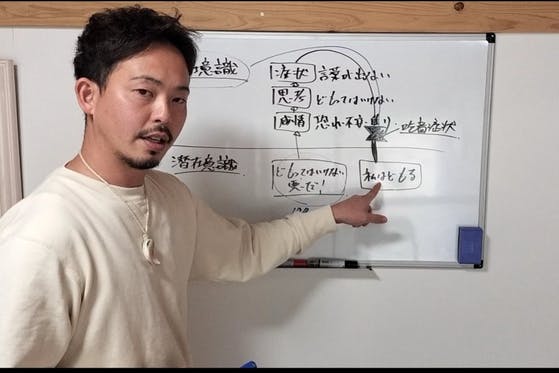 意識
症状 言葉が出ない
思考 どもってはいけない
感情 恐れ・不安・焦り
吃音症状
潜在意識
どもってはいけない
私はどもる